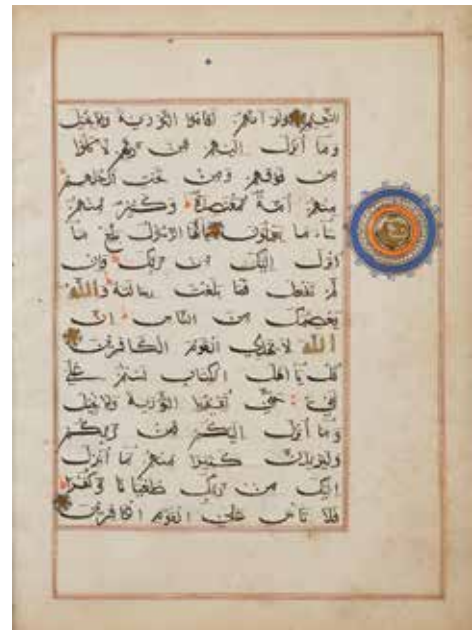 النعيم ولو انهم اقاموا التورية والانجيل
وما أنزل اليهم من ربهم لاكلوا
من فوقهم ومن تحت ارجلهم
منهم أمة مقتصدة وكثير منهم
ساء ما يعملون يا أيها الرسول بلغ ما
انزل اليك من ربك وان
لم تفعل فما بلغت رسالته والله
يعصمك من الناس ان
الله لا يهدى القوم الكافرين
قل يا اهل الكتاب لستم على
شيء حتى تقيموا التورية والانجيل
وما أنزل اليكم من ربكم
وليزيدن كثيرا منهم ما أنزل
اليك من ربك طغيانا وكفرا
فلا تأس على القوم الكافرين